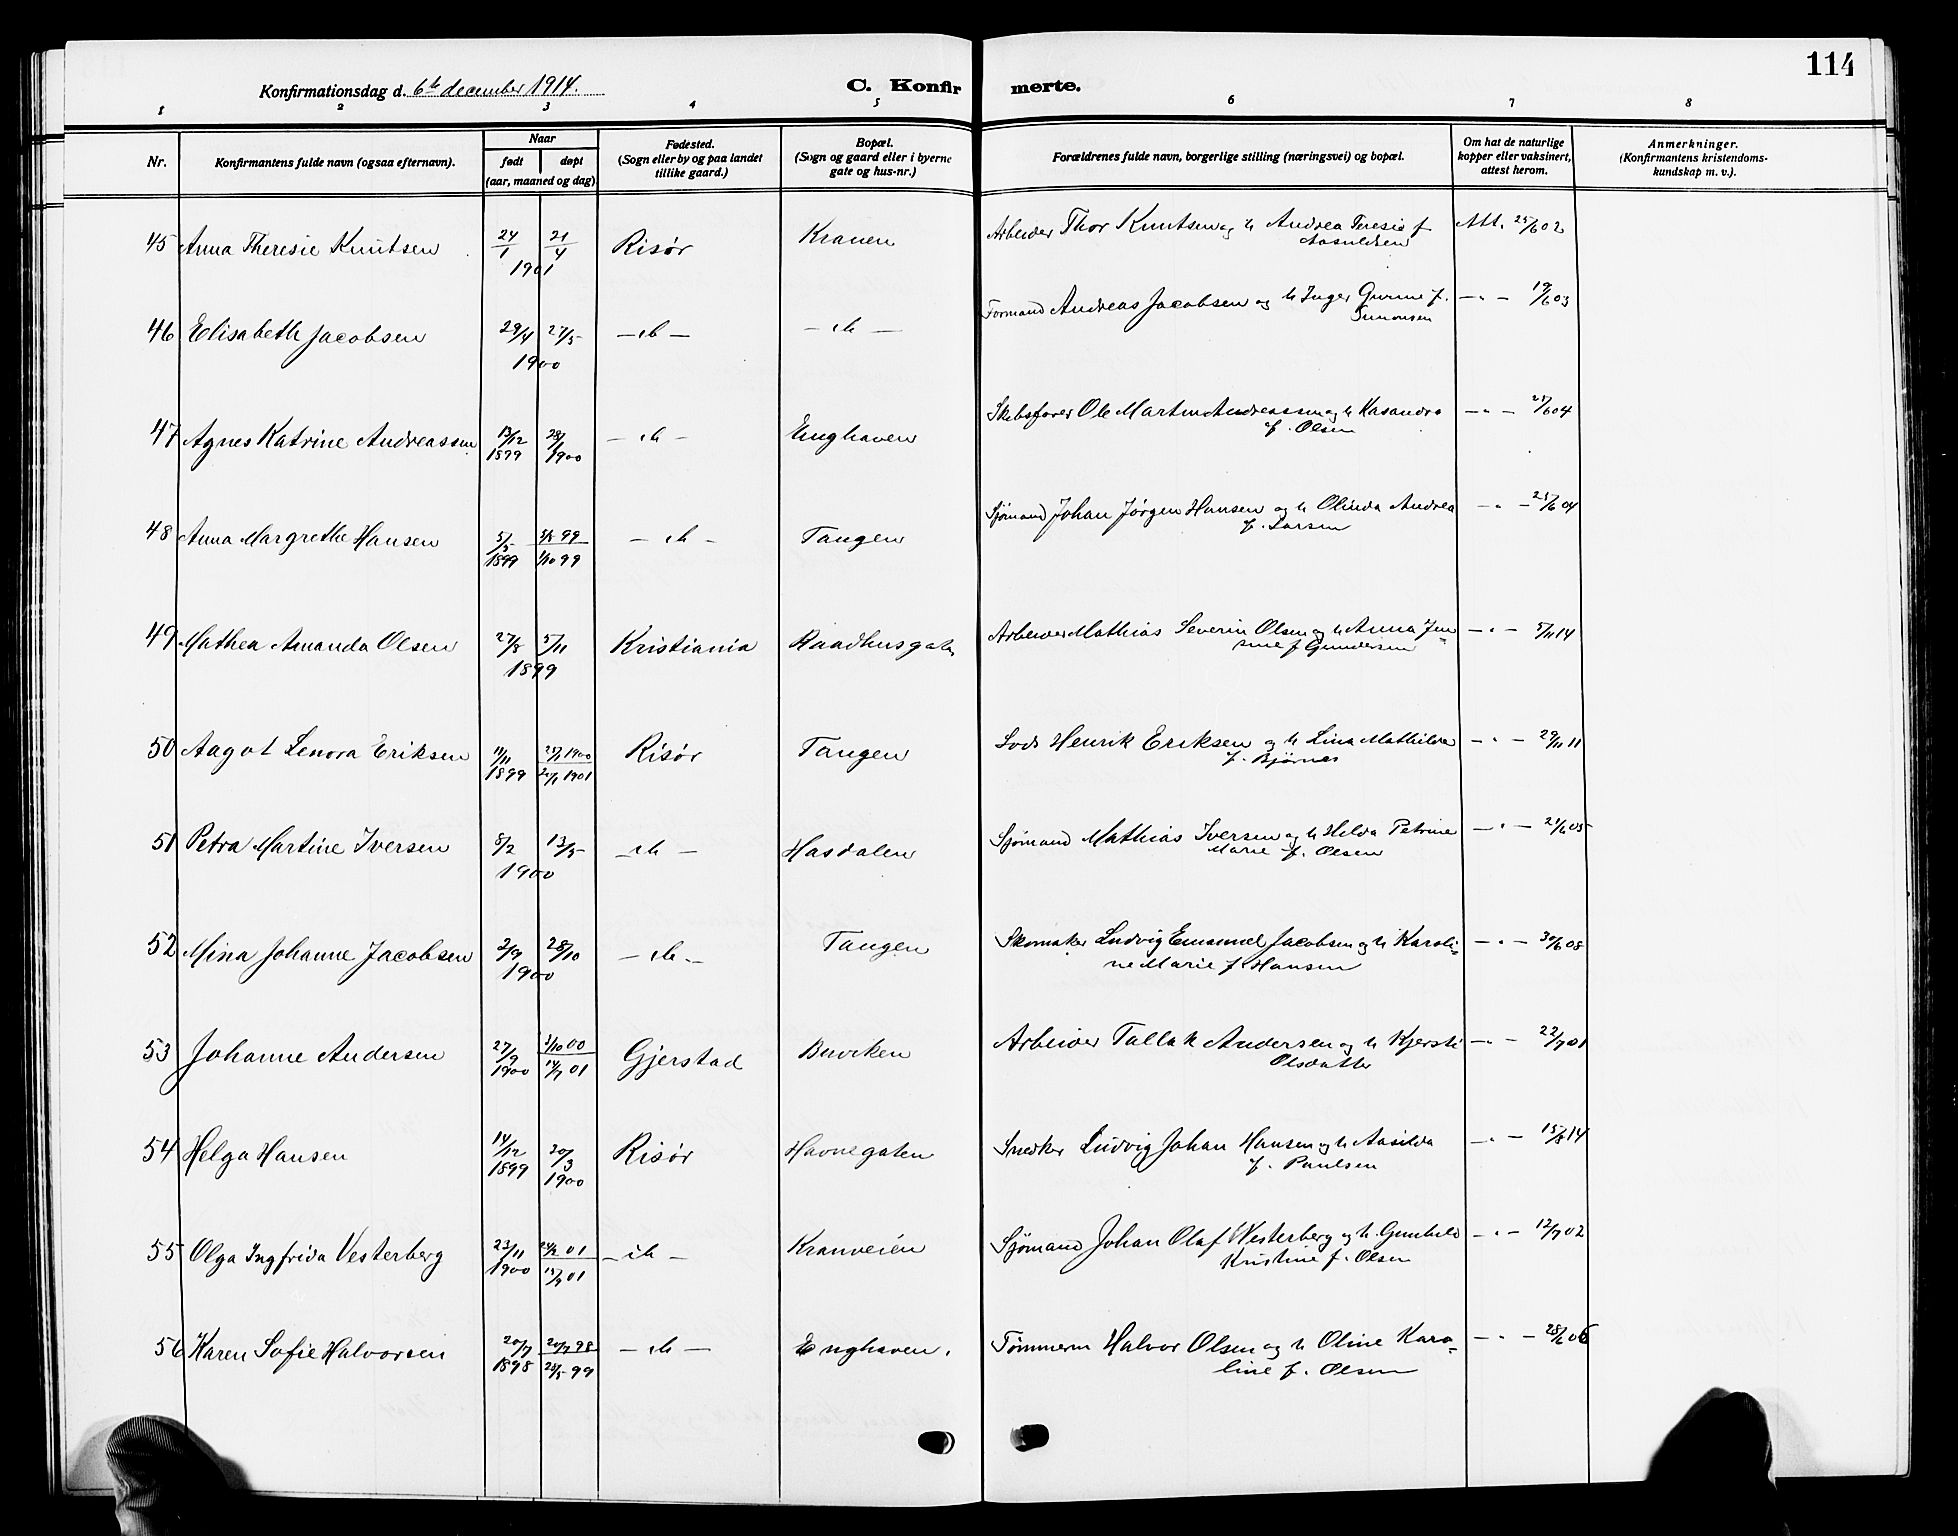 114
Konfirmationsdag d. 6te december 1914.
C. Konfir merte.
1 2 3 4 5 6 7 8
Nr.
Konfirmantens fulde navn (ogsaa efternavn).
Naar
født døpt
(aar, maaned og dag)
Fødested.
(Sogn eller by og paa landet
tillike gaard.)
Bopæl.
(Sogn og gaard eller i byerne
gate og hus-nr.)
Forældrenes fulde navn, borgerlige stilling (næringsvei) og bopæl.
Om hat de naturlige
kopper eller vaksinert,
attest herom.
Anmerkninger.
(Konfirmantens kristendoms-
kundskap m. v.).
45 Anna Theresie Knutsen 24/1 21/4 1901 Risør Kranen Arbeider Thor Knutsen og h Andrea Teresie f Att. 25/6 02
46 Elisabeth Jacobsen 29/4 27/5 1900 — " — — " — Formand Andreas Jacobsen og h Inger Gurine f. — " — 19/6 03
Simonsen
47 Agnes Katrine Andreassen 13/12 1899 28/1 1900 — " — Enghaven Skibsfører Ole Martin Andreassen og h Kasandra — " — 04
f. Olsen
48 Anna Margrethe Hansen 5/5 1899 99 1/10 99 — " — Tangen Sjømand Johan Jørgen Hansen og h Olinda Andrea — " — 04
f. Larsen
49 Mathea Amanda Olsen 27/8 5/11 1899 Kristiania Raadhusgaten Arbeider Mathias Severin Olsen og h Anna Jen= — " — 5/11 14
sine f Gundersen
50 Aagot Lenora Eriksen 11/11 1899 1900 1901 Risør Tangen Lods Henrik Eriksen og h Lina Mathilde — " — 29/11 11
f. Bjørnes
51 Petra Martine Iversen 8/2 13/5 1900 — " — Hasdalen Sjømand Mathias Iversen og h Helda Petrine — " — 05
Marie f. Olsen
52 Mina Johanne Jacobsen 2/9 28/10 1900 — " — Tangen Skomaker Ludvig Emanuel Jacobsen og h Karoli= — " — 30/6 08
ne Marie f Hansen
53 Johanne Andersen 27/9 1900 3/10 00 14/7 01 Gjerstad Arbeider Tallak Andersen og h Kjersti — " — 22/7 01
Olsdatter
54 Helga Hansen 14/12 1899 20/3 1900 Risør Havnegaten Snedker Ludvig Johan Hansen og h Aasilda — " — 15/8 14
f. Paulsen
55 Olga Ingfrida Vesterberg 23/11 1900 24/2 01 01 — " — Kranveien Sjømand Johan Olaf Westerberg og h Gunhild — " — 12/7 02
Kristine f. Olsen
56 Karen Sofie Halvorsen 20/7 1898 20/7 98 99 — " — Enghaven. Tømmerm Halvor Olsen og h Oline Karo= — " — 28/6 06
line f. Olsen